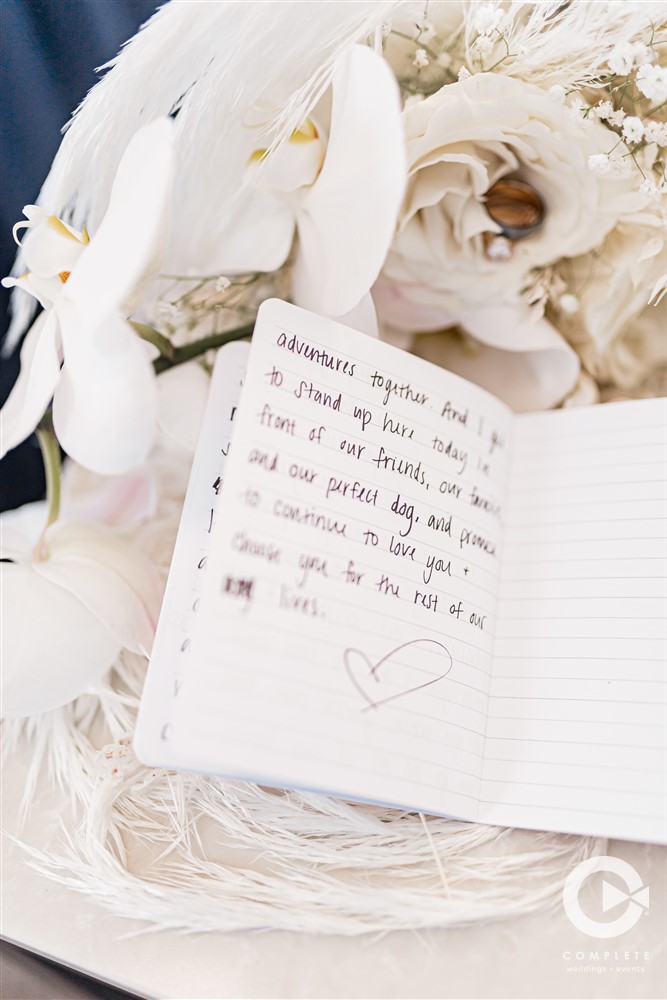 adventures together. And I get
to stand up here today in
front of our friends, our family
and our perfect dog, and promise
to continue to love you +
choose you for the rest of our
lives.
COMPLETE
weddings + events